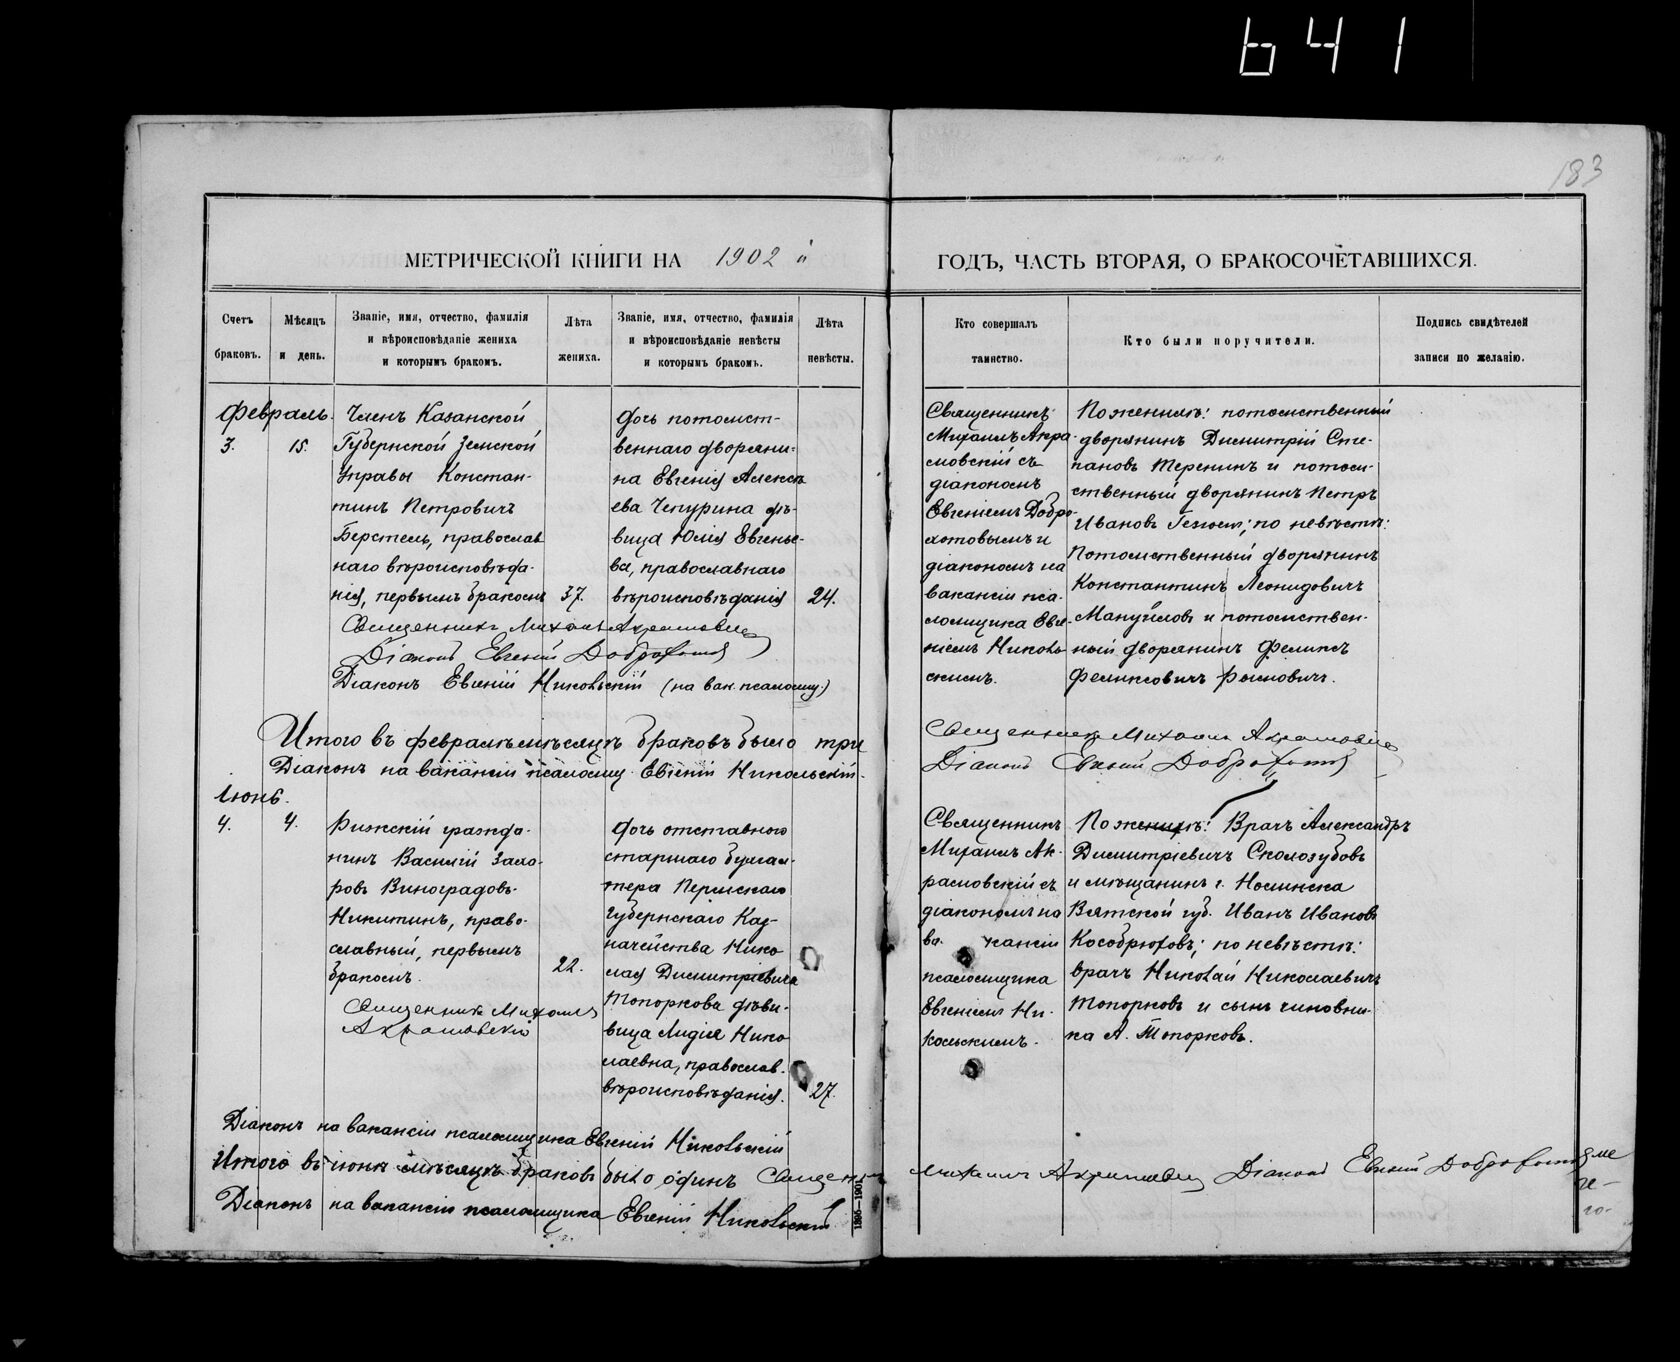 641
183
МЕТРИЧЕСКОЙ КНИГИ НА 1902 й
ГОДЪ, ЧАСТЬ ВТОРАЯ, О БРАКОСОЧЕТАВШИХСЯ.
Счетъ
браковъ.
Мѣсяцъ
и день.
Званіе, имя, отчество, фамилія
и вѣроисповѣданіе жениха
и которымъ бракомъ.
Лѣта
жениха.
Званіе, имя, отчество, фамилія
и вѣроисповѣданіе невѣсты
и которымъ бракомъ.
Лѣта
невѣсты.
Кто совершалъ
таинство.
Кто были поручители.
Подпись свидѣтелей
записи по желанію.
Февраль.
3.
15.
Членъ Казанской
Губернской Земской
Управы Констан-
тинъ Петровичъ
Берстель, православ
наго вѣроисповѣда-
нія, первымъ бракомъ
37.
дочь потомст-
веннаго дворяни-
на Евгенія Алексѣ
ева Чепурина дѣ-
вица Юлія Евгенье-
ва, православнаго
вѣроисповѣданія
24.
Священникъ Михаилъ Акрамовскій
Діаконъ Евгеній Доброхотовъ
Діаконъ Евгеній Никольскій (на вак. псаломщ.)
Священникъ
Михаилъ Акра-
мовскій съ
діакономъ
Евгеніемъ Добро-
хотовымъ и
діакономъ на
вакансіи пса-
ломщика Евге-
ніемъ Николь
скимъ.
По женихѣ: потомственный
дворянинъ Димитрій Сте-
пановъ Теренинъ и потом-
ственный дворянинъ Петръ
Ивановъ; по невѣстѣ:
Потомственный дворянинъ
Константинъ Леонидовичъ
Мануйловъ и потомствен-
ный дворянинъ Феликсъ
Феликсовичъ
Итого въ февралѣ мѣсяцѣ браковъ было три
Священникъ Михаилъ Акрамовскій
Діаконъ на вакансіи псаломщ. Евгеній Никольскій.
Діаконъ Евгеній Доброхотовъ
Іюнь.
4.
4.
Рижскій гражда-
нинъ Василій Заха-
ровъ Виноградовъ-
Никитинъ, право-
славный, первымъ
бракомъ.
22.
Священникъ Михаилъ
Акрамовскій
дочь отставного
старшаго бухгал-
тера Пермскаго
Губернскаго Каз-
начейства Нико
лая Димитріевича
Топоркова дѣви-
вица Лидія Нико
лаевна, православ.
вѣроисповѣданія.
27.
Священникъ
Михаилъ Ак-
рамовскій съ
діакономъ на
ва- кансіи
псаломщика
Евгеніемъ Ни-
кольскимъ.
По женихѣ: Врачъ Александръ
Димитріевичъ Сколозубовъ
и мѣщанинъ г. Нолинска
Вятской губ. Иванъ Ивановъ
Кособрюховъ; по невѣстѣ:
врачъ Николай Николаевичъ
Топорковъ и сынъ чиновни-
ка А. Топорковъ.
Діаконъ на вакансіи псаломщика Евгеній Никольскій
Итого въ іюнѣ мѣсяцѣ браковъ было одинъ Священникъ Михаилъ Акрамовскій Діаконъ Евгеній Доброхотовъ
Діаконъ на вакансіи псаломщика Евгеній Никольскій
1895–1901